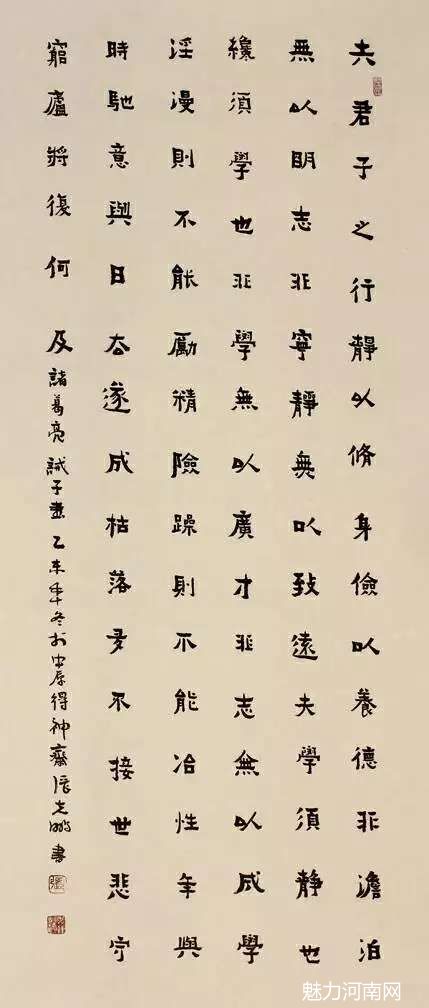 夫君子之行靜以脩身儉以養德非澹泊
無以明志非寧靜無以致遠夫學須靜也
纔須學也非學無以廣才非志無以成學
淫漫則不能勵精險躁則不能冶性年與
時馳意與日去遂成枯落多不接世悲守
窮廬將復何及諸葛亮誡子書乙未年冬於中原得神齋張鵬書
魅力河南网